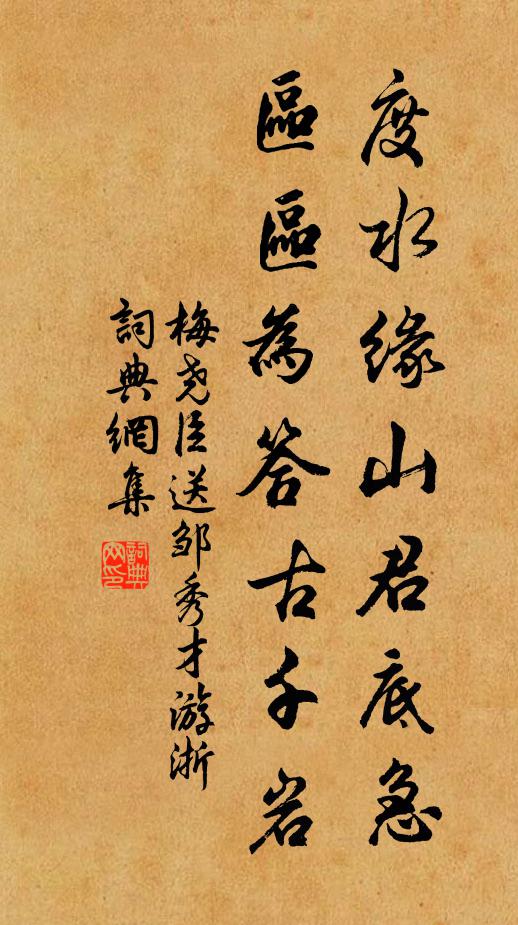 度水缘山君底急
區區為答古千岩
梅尧臣送邹秀才游浙
詞典網集
詞典网印